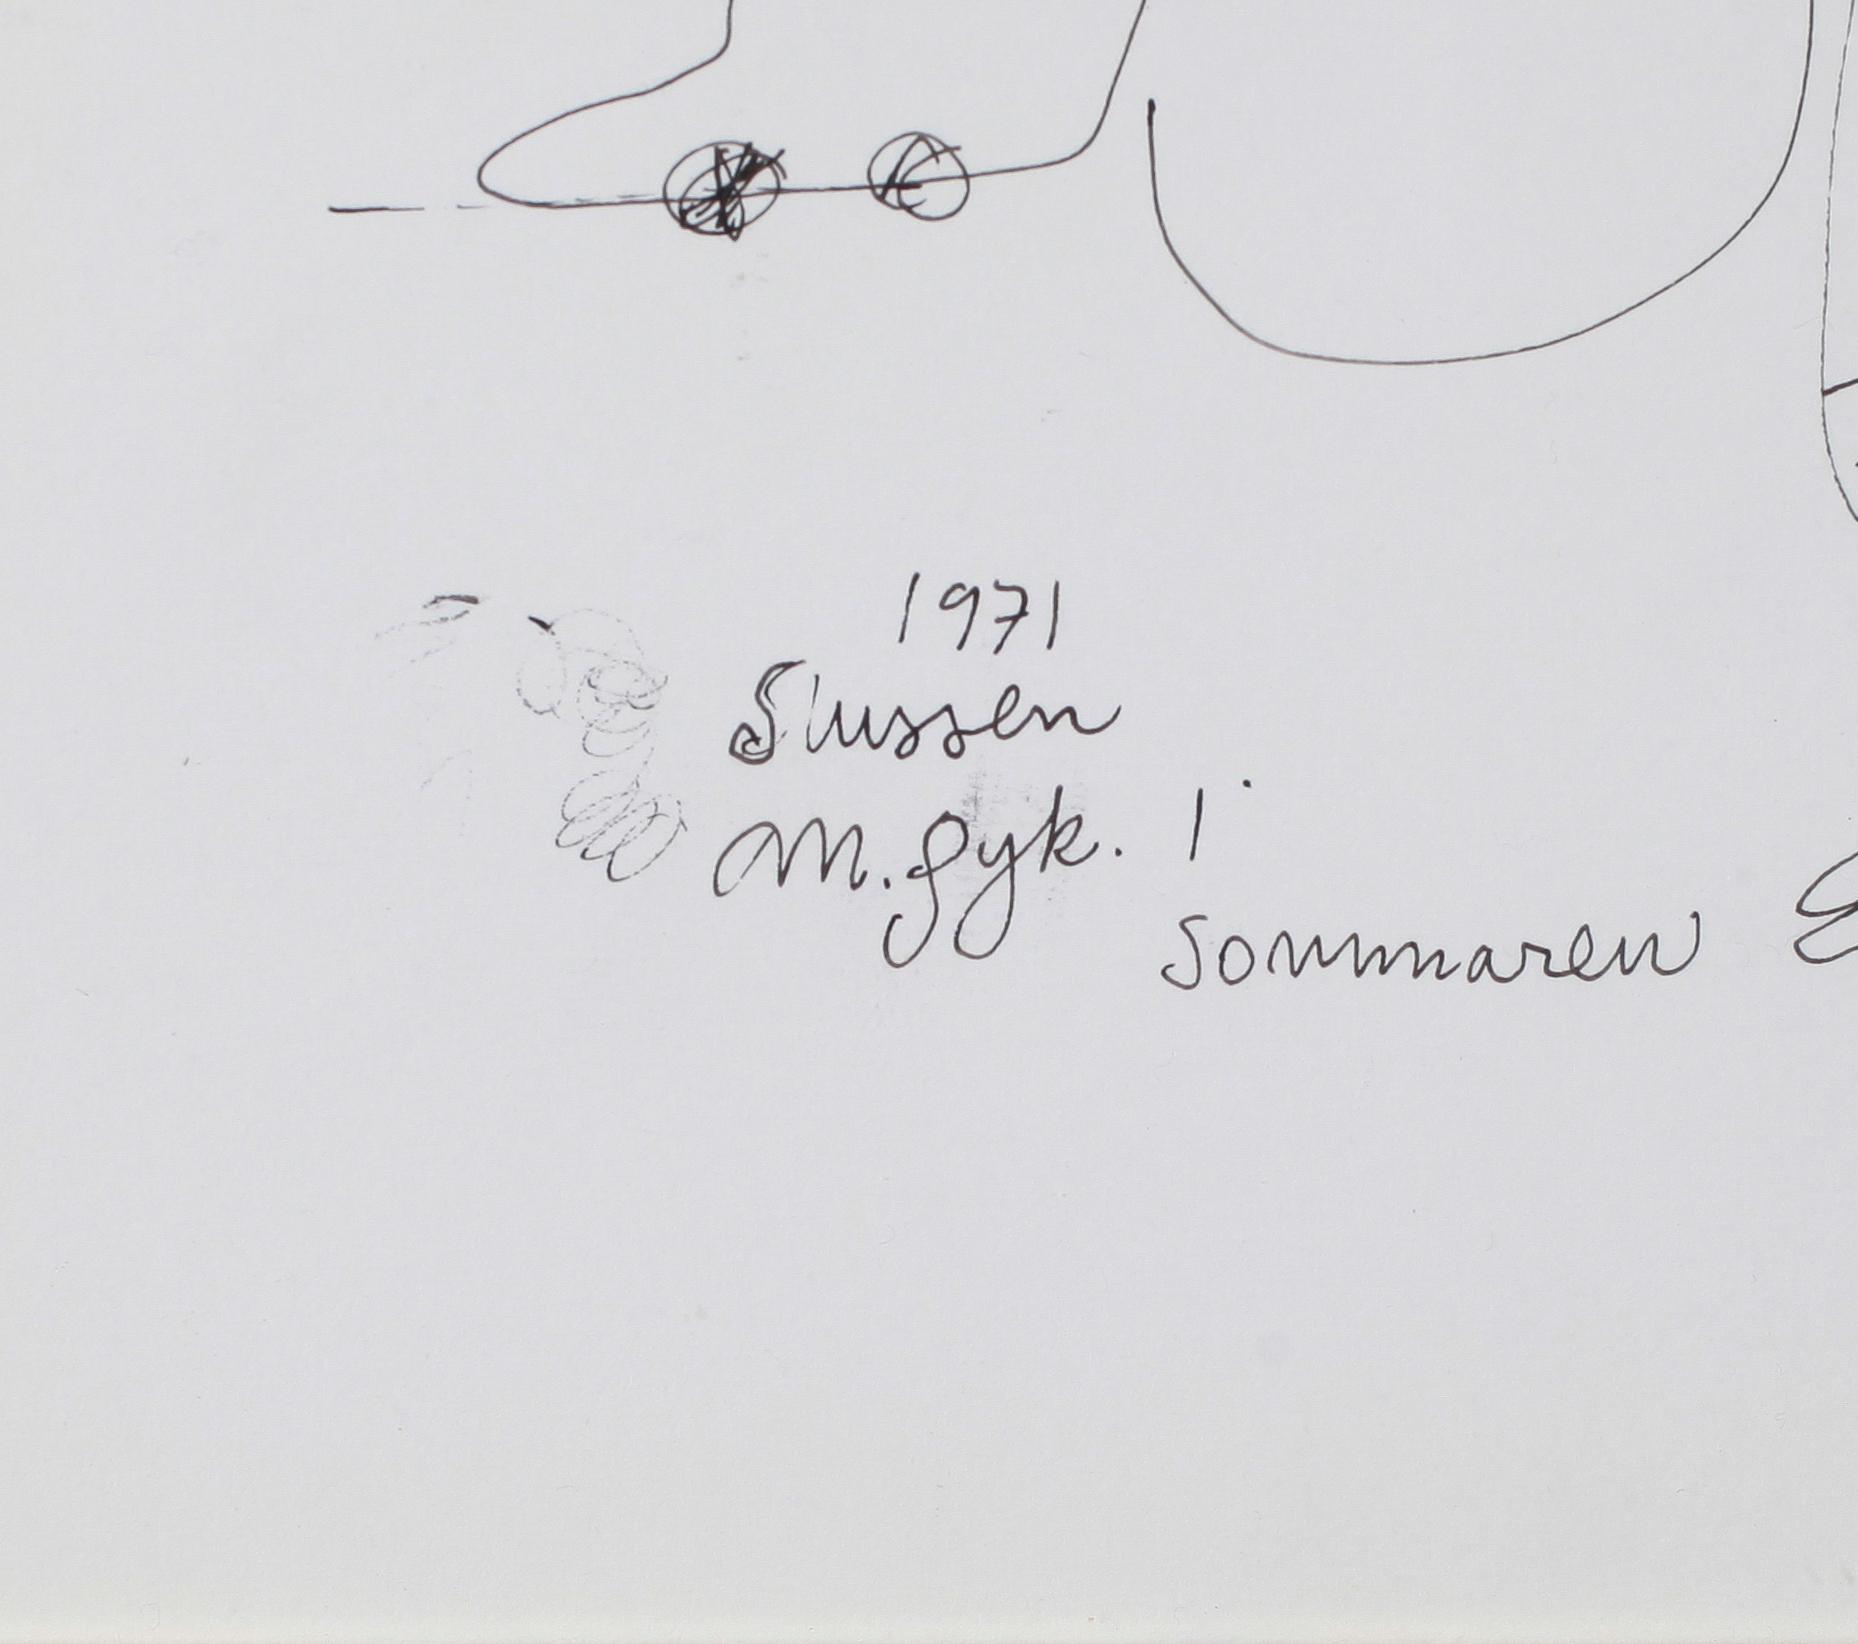 1971
Slussen
M. Gyk. i
sommaren